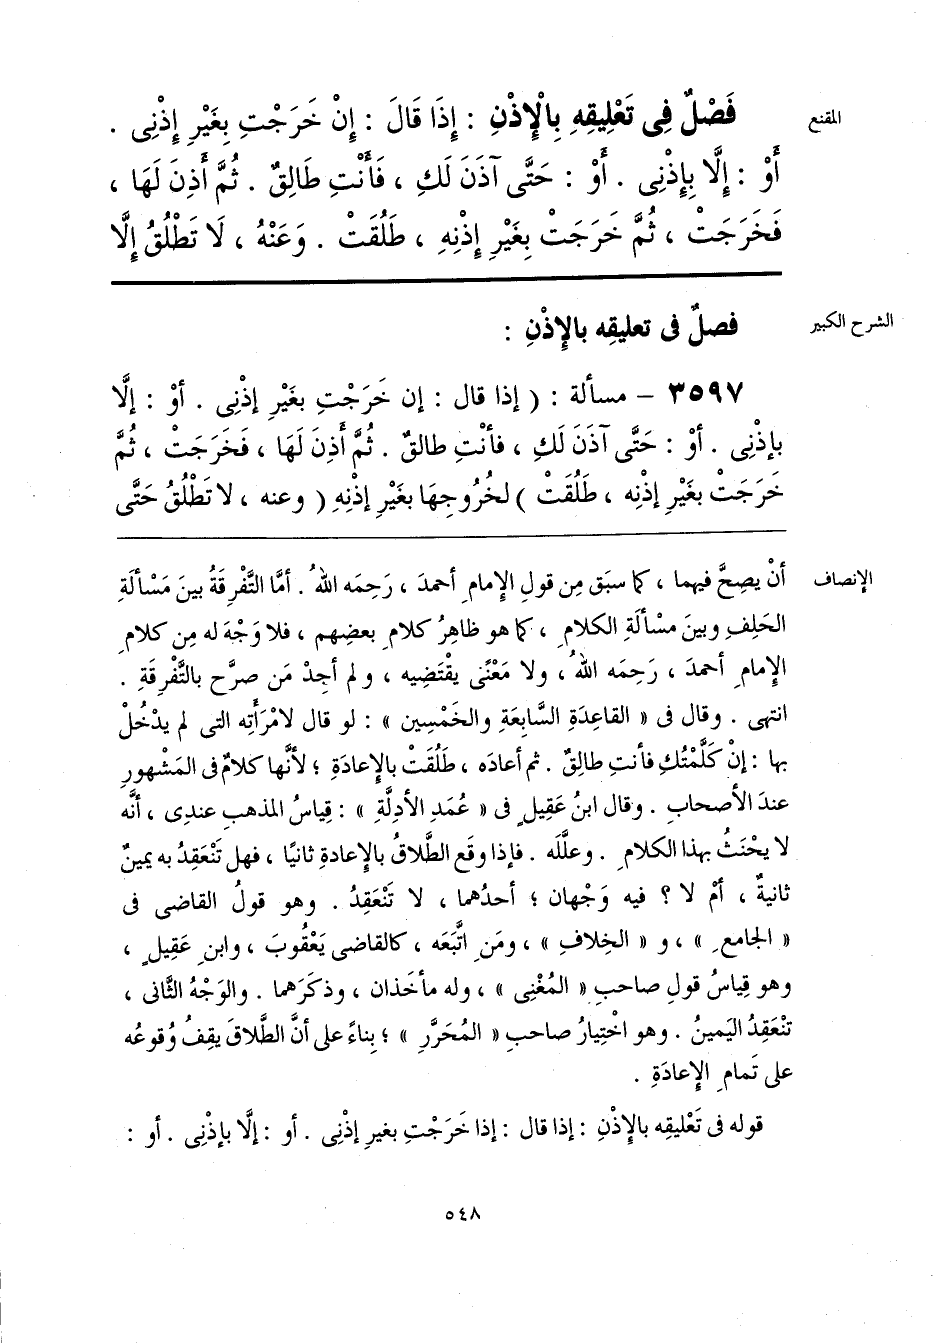 المقنع
فَصْلٌ فِى تَعْلِيقِهِ بِالْإِذْنِ : إِذَا قَالَ : إِنْ خَرَجْتِ بِغَيْرِ إِذْنِى .
أَوْ : إِلَّا بِإِذْنِى . أَوْ : حَتَّى آذَنَ لَكِ ، فَأَنْتِ طَالِقٌ . ثُمَّ أَذِنَ لَهَا ،
فَخَرَجَتْ ، ثُمَّ خَرَجَتْ بِغَيْرِ إِذْنِهِ ، طَلُقَتْ . وَعَنْهُ ، لَا تَطْلُقُ إِلَّا
الشرح الكبير
فصلٌ فى تعليقِه بالإِذْنِ :
٣٥٩٧ – مسألة : ( إذا قال : إن خَرَجْتِ بغَيْرِ إذْنِى . أوْ : إلَّا
بإذْنِى . أوْ : حَتَّى آذَنَ لَكِ ، فأنْتِ طالقٌ . ثُمَّ أَذِنَ لَهَا ، فَخَرَجَتْ ، ثُمَّ
خَرَجَتْ بغَيْرِ إذْنِه ، طَلُقَتْ ) لخُروجِهَا بغَيْرِ إذْنِهِ ( وعنه ، لا تَطْلُقُ حَتَّى
الإنصاف
أنْ يصِحَّ فيهما ، كما سبَق مِن قولِ الإِمامِ أحمدَ ، رَحِمَه اللهُ . أمَّا التَّفْرِقَةُ بينَ مَسْألَةِ
الحَلِفِ وبينَ مسْألَةِ الكلامِ ، كما هو ظاهِرُ كلامِ بعضِهم ، فلا وَجْهَ له مِن كلامِ
الإِمامِ أحمدَ ، رَحِمَه اللهُ ، ولا مَعْنًى يقْتَضِيه ، ولم أجِدْ مَن صرَّح بالتَّفْرِقَةِ .
انتهى . وقال فى « القاعِدَةِ السَّابعَةِ والخَمْسِين » : لو قال لامْرَأتِه التى لم يدْخُلْ
بها : إنْ كلَّمْتُكِ فأنتِ طالِقٌ . ثم أعادَه ، طَلُقَتْ بالإِعادَةِ ؛ لأنَّها كلامٌ فى المَشْهورِ
عندَ الأصحابِ . وقال ابنُ عَقِيلٍ فى « عُمَدِ الأدِلَّةِ » : قِياسُ المذهبِ عندِى ، أنَّه
لا يحْنَثُ بهذا الكلامِ . وعلَّلَه . فإذا وقَع الطَّلاقُ بالإِعادةِ ثانيًا ، فهل تنْعَقِدُ به يمينٌ
ثانيةٌ ، أمْ لا ؟ فيه وَجْهان ؛ أحدُهما ، لا تَنْعَقِدُ . وهو قولُ القاضى فى
« الجامعِ » ، و « الخِلافِ » ، ومَنِ اتَّبَعَه ، كالقاضى يَعْقُوبَ ، وابنِ عَقِيلٍ ،
وهو قِياسُ قولِ صاحبِ « المُغْنِى » ، وله مأخَذان ، وذكَرَهما . والوَجْهُ الثَّانى ،
تنْعَقِدُ اليَمينُ . وهو اخْتِيارُ صاحبِ « المُحَرَّرِ » ؛ بِناءً على أنَّ الطَّلاقَ يقِفُ وُقوعُه
على تَمامِ الإِعادَةِ .
قوله فى تَعْليقِه بالإِذْنِ : إذا قال : إذا خَرَجْتِ بغيرِ إذْنِى . أو : إلَّا بإذْنِى . أو :
٥٤٨